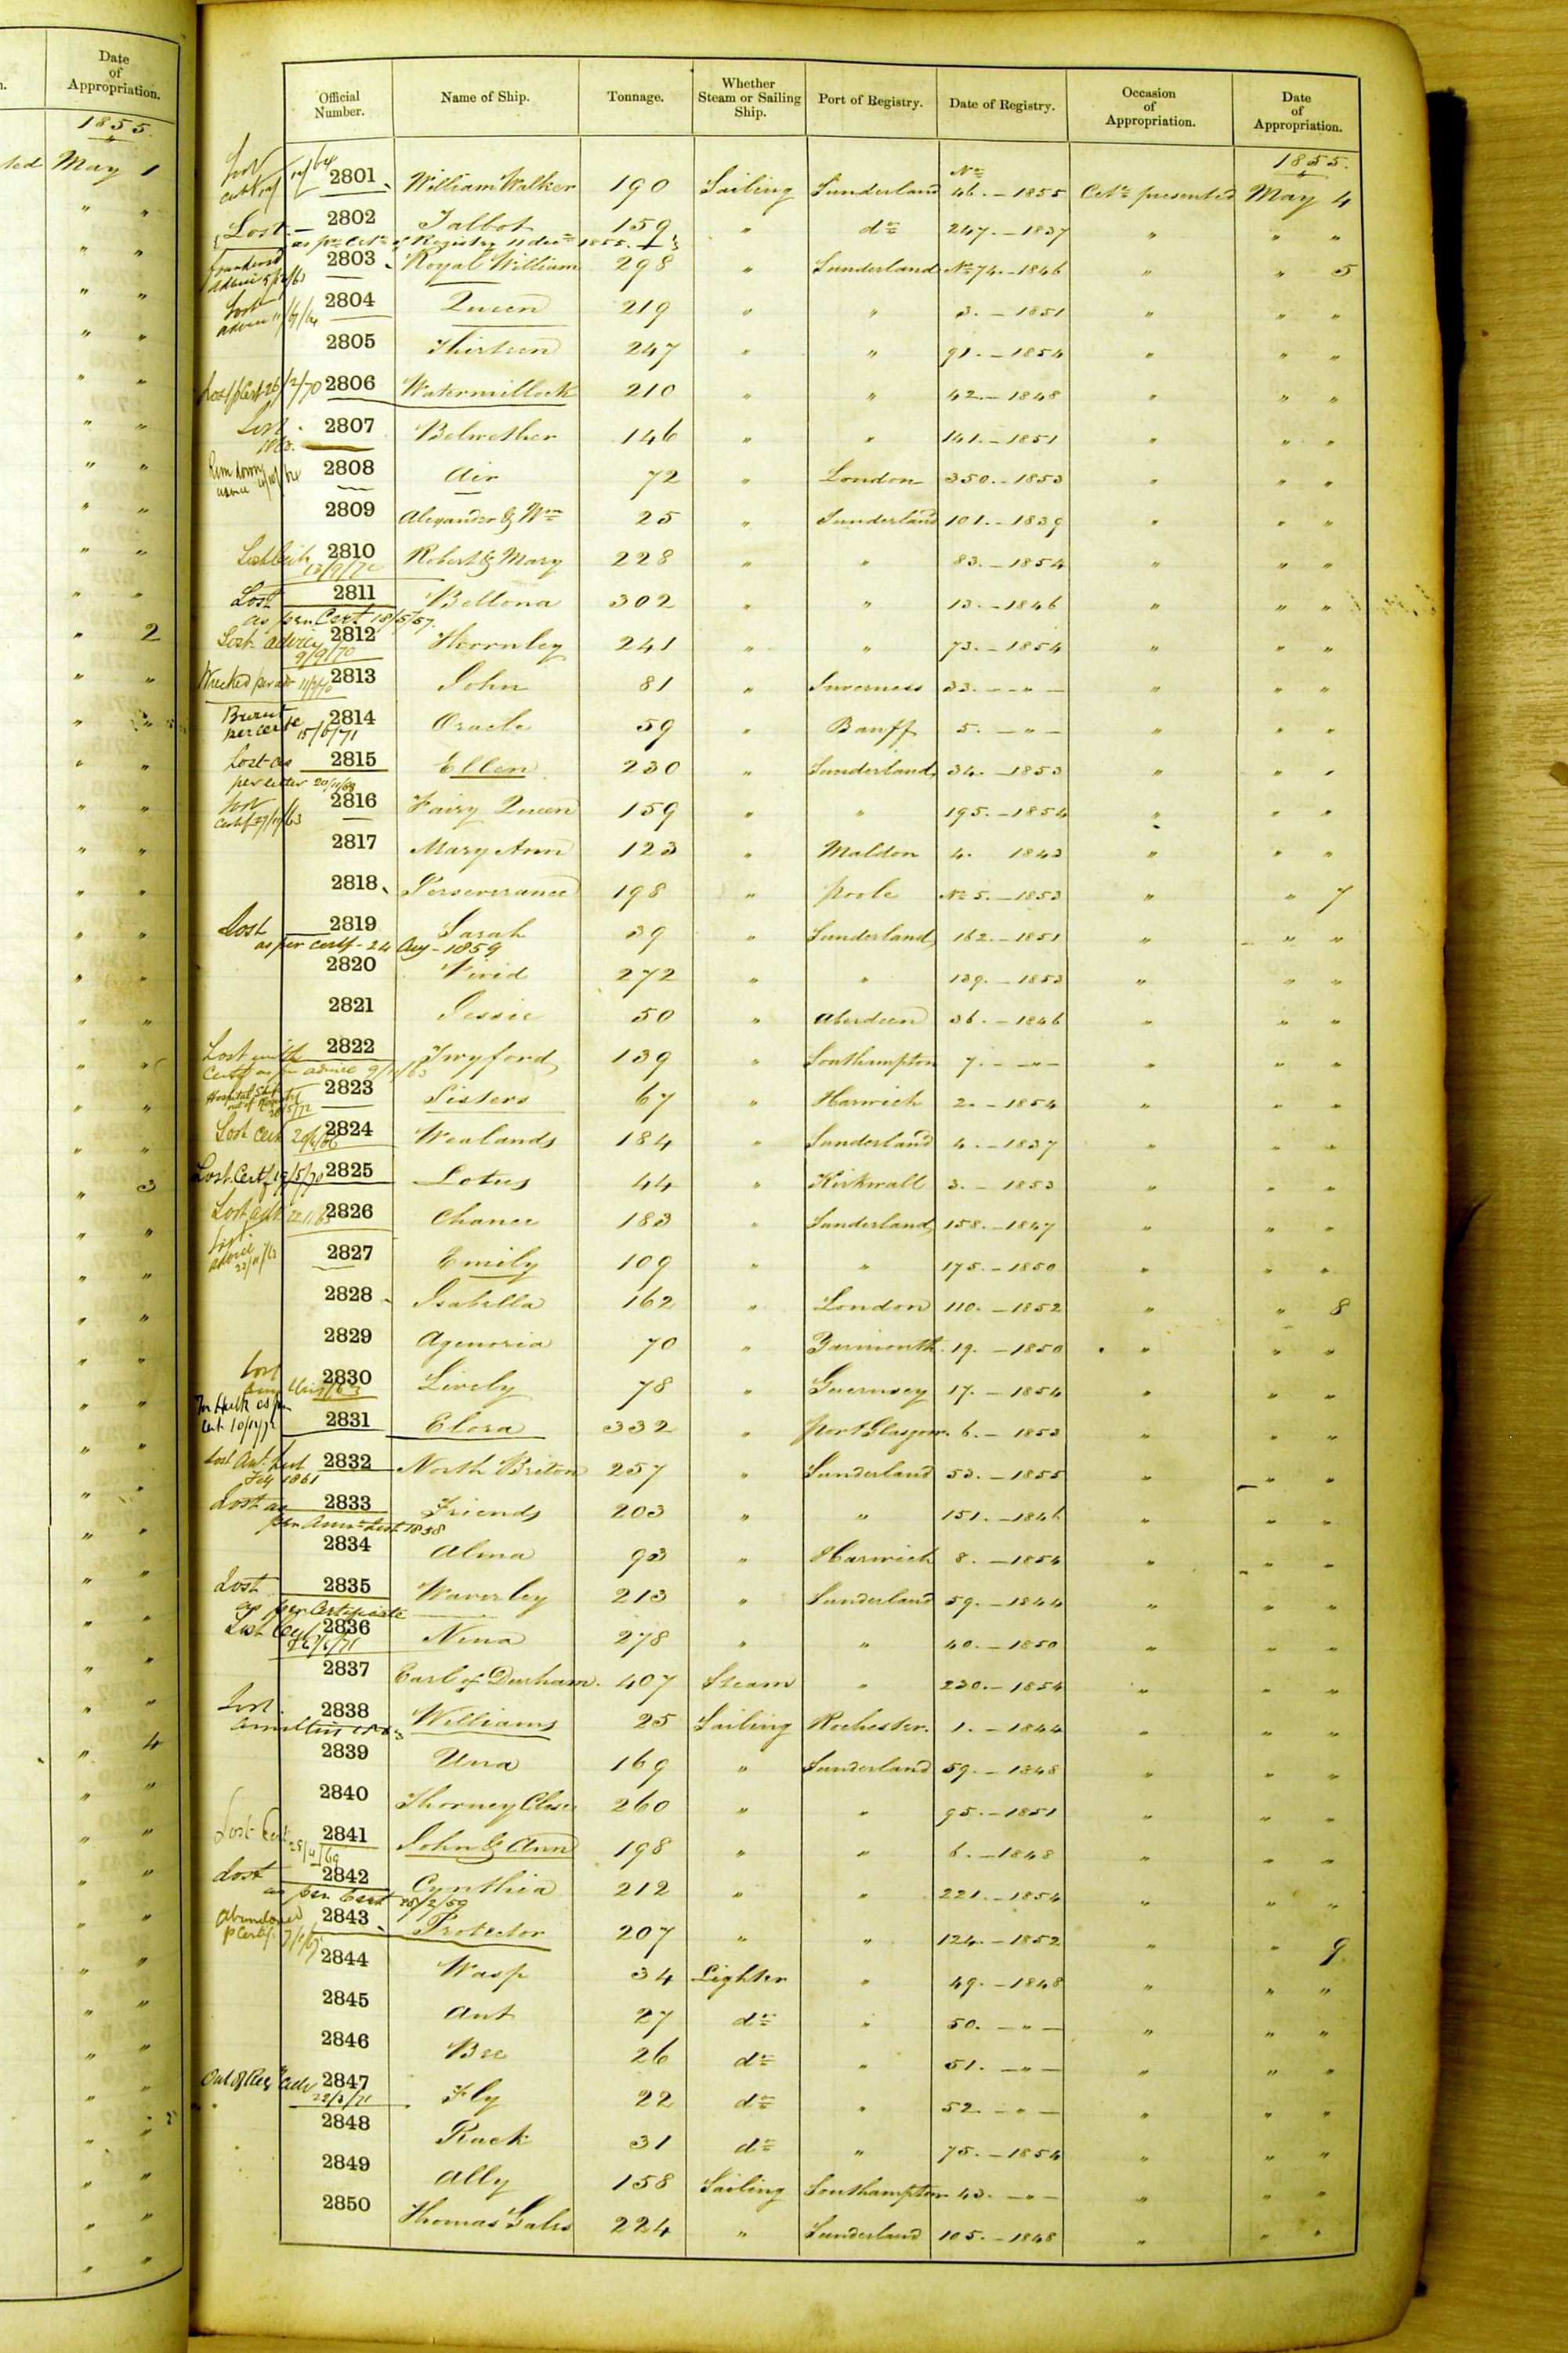 Date of Appropriation.
1855.
May 1
" "
2
3
4
Official Number. Name of Ship. Tonnage. Whether Steam or Sailing Ship. Port of Registry. Date of Registry. Occasion of Appropriation. Date of Appropriation.
1855.
2801 William Walker 190 Sailing Sunderland No 46. - 1855 Certe presented May 4
Lost 2802 Talbot 159 " do 247. - 1837 " " "
as pr Certe of Registry 11 decr 1855.
foundered 2803 Royal William 298 " Sunderland No 74. - 1846 " " 5
Lost 2804 Queen 219 " " 3. - 1851 " " "
2805 Thirteen 247 " " 91. - 1854 " " "
2806 Watermillock 210 " " 42. - 1848 " " "
Lost 2807 Belwether 146 " " 141. - 1851 " " "
Run down 2808 Air 72 " London 350. - 1853 " " "
2809 Alexander & Wm 25 " Sunderland 101. - 1839 " " "
2810 Robert & Mary 228 " " 83. - 1854 " " "
Lost 2811 Bellona 302 " " 13. - 1846 " " "
as per Cert 18/5/57.
Lost advice 9/9/70 2812 Herrnley 241 " " 73. - 1854 " " "
Wrecked per adv 2813 John 81 " Inverness 33. - " - " " "
Burnt per certe 15/6/71 2814 Oracle 59 " Banff 5. - " - " " "
Lost as per letter 2815 Ellen 230 " Sunderland 34. - 1853 " " "
2816 Fairy Queen 159 " " 195. - 1854 " " "
2817 Mary Ann 123 " Maldon 4. 1843 " " "
2818 Perseverance 198 " Poole No 5. - 1853 " " 7
Lost 2819 Sarah 39 " Sunderland 162. - 1851 " " "
as per certf - 24 Aug - 1859
2820 Vivid 272 " " 139. - 1853 " " "
2821 Jessie 50 " Aberdeen 36. - 1846 " " "
Lost with 2822 Twyford 139 " Southampton 7. - " - " " "
Certe as per advice
2823 Sisters 67 " Harwich 2. - 1854 " " "
Lost Cert 2824 Wealands 184 " Sunderland 4. - 1837 " " "
Lost Certf 19/5/70 2825 Lotus 44 " Kirkwall 3. - 1853 " " "
2826 Chance 183 " Sunderland 158. - 1847 " " "
Lost advice 2827 Emily 109 " " 175. - 1850 " " "
2828 Isabella 162 " London 110. - 1852 " " 8
2829 Agenoria 70 " Yarmouth 19. - 1850 " " "
Lost 2830 Lively 78 " Guernsey 17. - 1854 " " "
2831 Clora 332 " Port Glasgow 6. - 1853 " " "
2832 North Briton 257 " Sunderland 53. - 1855 " " "
Feb 1861
Lost as 2833 Friends 203 " " 151. - 1846 " " "
per Annl List 1858
2834 Alma 93 " Harwich 8. - 1854 " " "
Lost 2835 Waverley 213 " Sunderland 59. - 1844 " " "
as per Certificate
2836 Nina 278 " " 40. - 1850 " " "
2837 Earl of Durham. 407 Steam " 230. - 1854 " " "
Lost 2838 Williams 25 Sailing Rochester. 1. - 1844 " " "
2839 Una 169 " Sunderland 59. - 1848 " " "
2840 Thorney Close 260 " " 95. - 1851 " " "
Lost Cert 2841 John & Ann 198 " " 6. - 1848 " " "
Lost 2842 Cynthia 212 " " 221. - 1854 " " "
as per Cert
Abandoned 2843 Protector 207 " " 124. - 1852 " " 9
2844 Wasp 34 Lighter " 49. - 1848 " " "
2845 Ant 27 do " 50. - " - " " "
2846 Bee 26 do " 51. - " - " " "
Out of Reg Adv 22/3/71 2847 Fly 22 do " 52. - " - " " "
2848 Rack 31 do " 75. - 1854 " " "
2849 Ally 158 Sailing Southampton 43. - " - " " "
2850 Thomas Gales 224 " Sunderland 105. - 1848 " " "